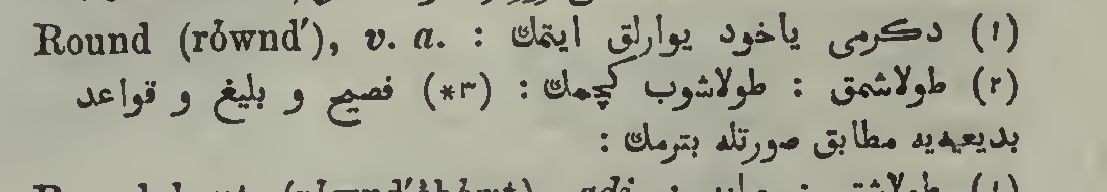 Round (rŏwnd′), v. a. : (١) دكرمى ياخود يوارلق ايتمك
(٢) طولاشمق : طولاشوب كچمك : (٣*) فصيح و بليغ و قواعد
بديعيه‌يه مطابق صورتله بترمك :